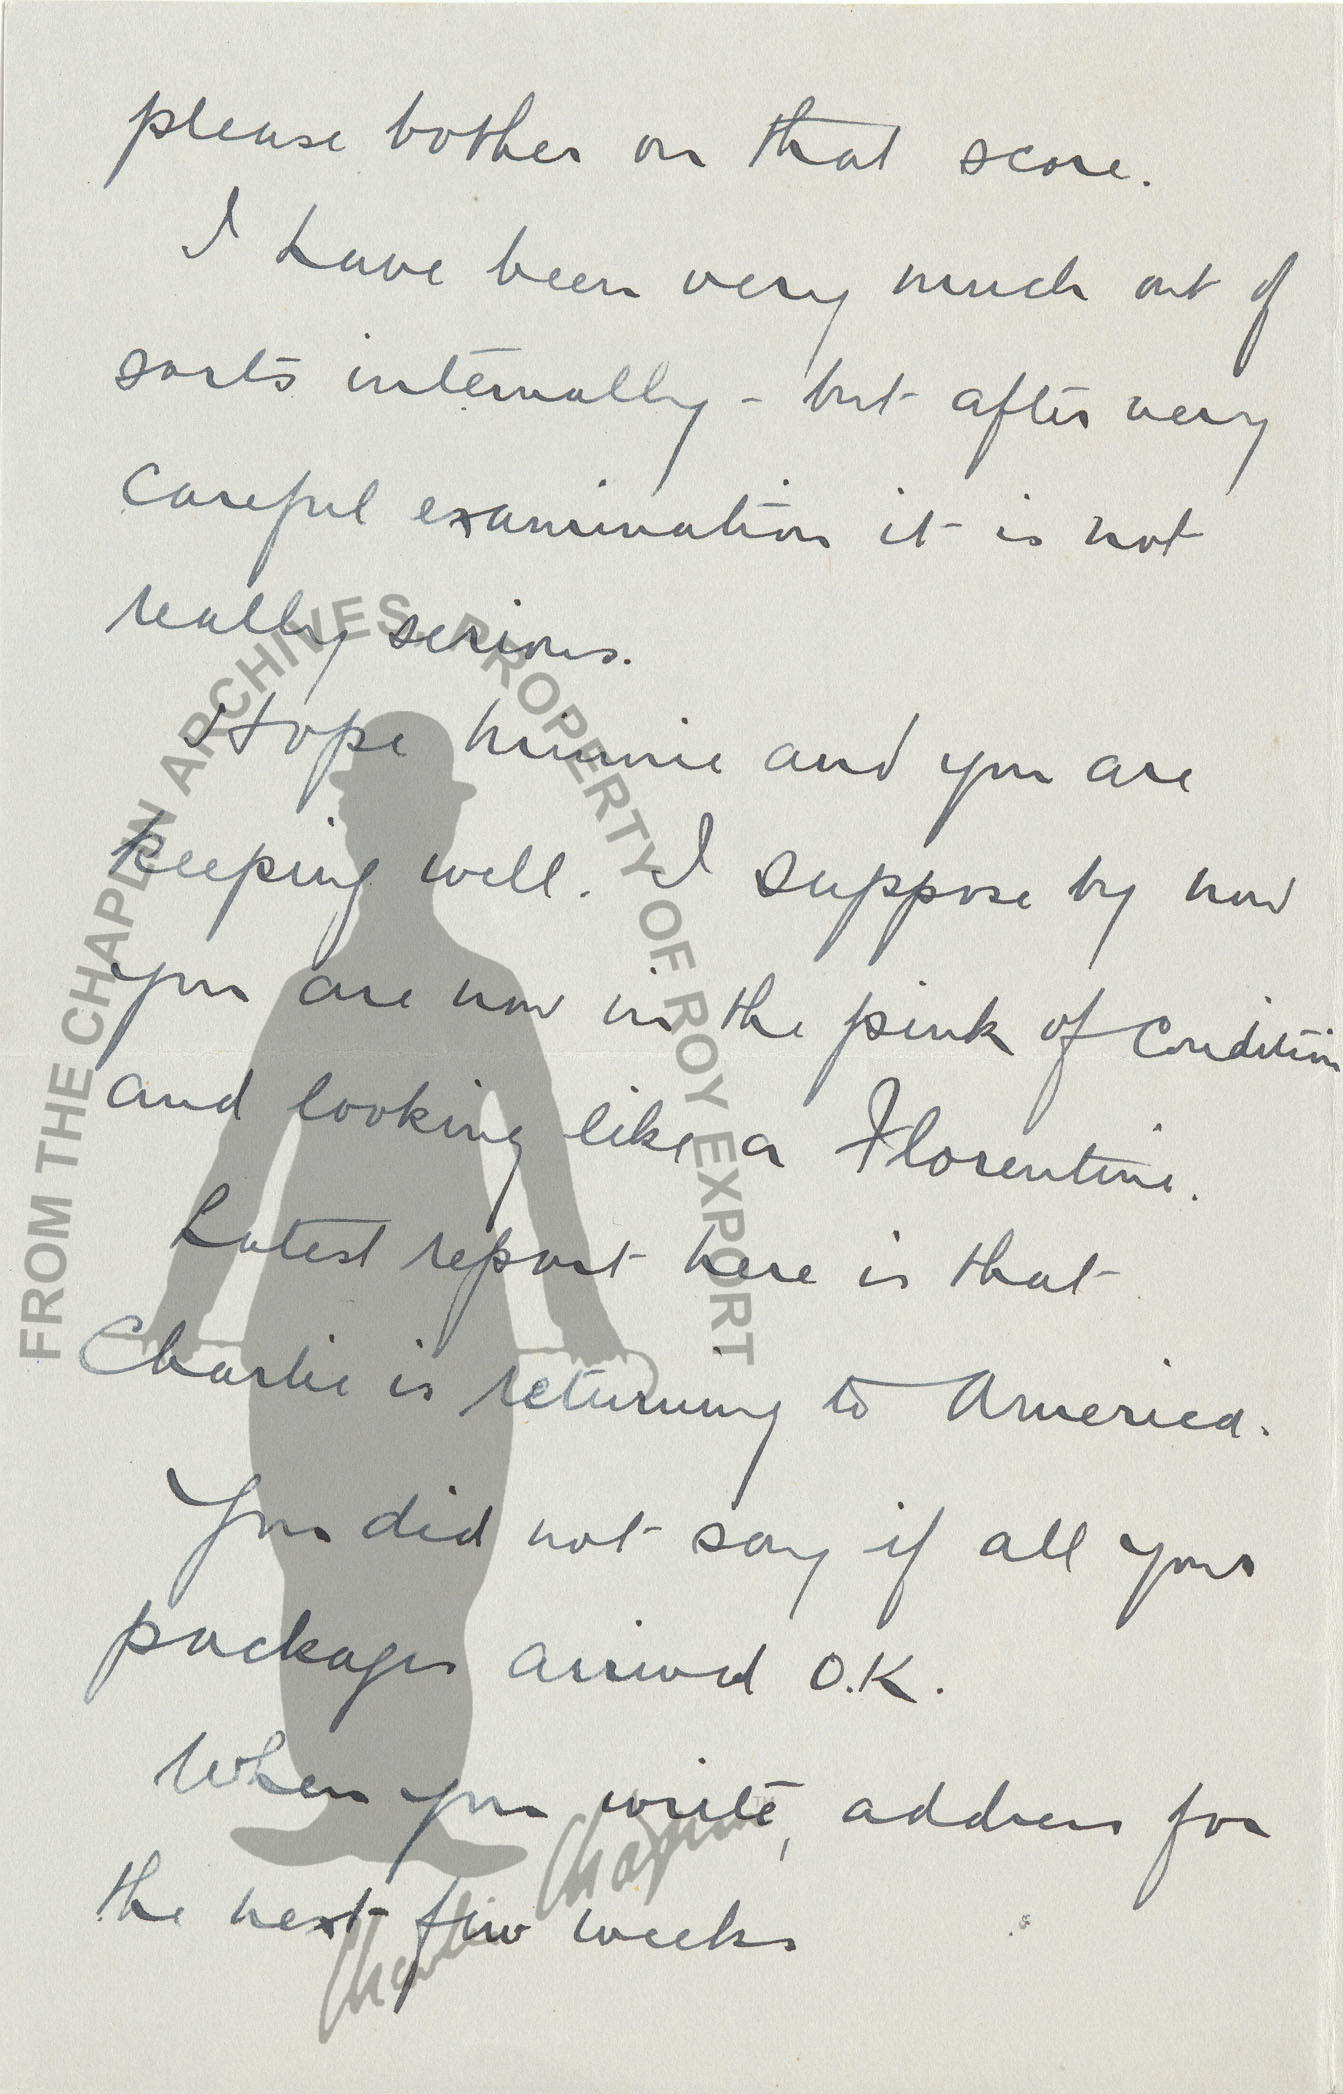 please bother on that score.
I have been very much out of
sorts internally - but after very
careful examination it is not
really serious.
Hope Minnie and you are
keeping well. I suppose by now
you are now in the pink of condition
and looking like a Florentine.
Latest report here is that
Charlie is returning to America.
You did not say if all your
packages arrived O.K.
When you write, address for
the next few weeks
FROM THE CHAPLIN ARCHIVES, PROPERTY OF ROY EXPORT
Charlie Chaplin™